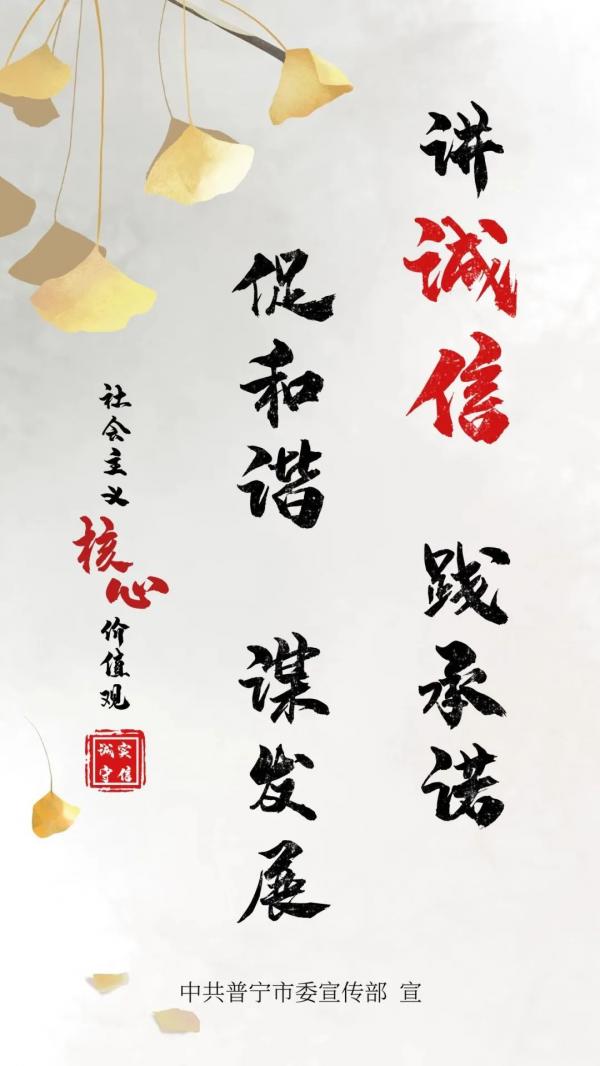 讲诚信 践承诺
促和谐 谋发展
社会主义核心价值观
诚实守信
中共普宁市委宣传部 宣